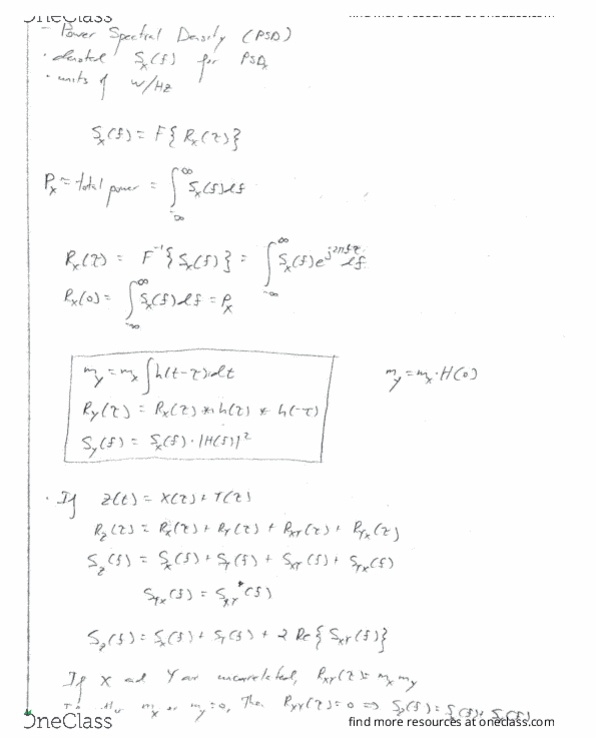 OneClass find more resources at oneclass.com
- Power Spectral Density (PSD)
• denoted S_x(f) for PSD,
• units of W/Hz
S_x(f) = F{R_x(τ)}
P_x = total power = ∫_{-∞}^{∞} S_x(f)df
R_x(τ) = F^{-1}{S_x(f)} = ∫_{-∞}^{∞} S_x(f)e^{j2πfτ}df
R_x(0) = ∫_{-∞}^{∞} S_x(f)df = P_x
m_y = m_x ∫h(t-τ)dt m_y = m_x·H(0)
R_y(τ) = R_x(τ) * h(τ) * h(-τ)
S_y(f) = S_x(f)·|H(f)|²
• If Z(t) = X(t) + Y(t)
R_z(τ) = R_x(τ) + R_y(τ) + R_xy(τ) + R_yx(τ)
S_z(f) = S_x(f) + S_y(f) + S_xy(f) + S_yx(f)
S_yx(f) = S_xy*(f)
S_z(f) = S_x(f) + S_y(f) + 2 Re{S_xy(f)}
If X and Y are uncorrelated, R_xy(τ) = m_x m_y
m_x or m_y = 0, then R_xy(τ) = 0 ⇒ S_z(f) = S_x(f) + S_y(f)
OneClass find more resources at oneclass.com